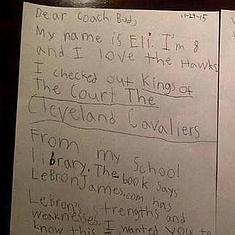 Dear Coach Bud,
11-29-15
My name is Eli. I'm 8
and I love the Hawks
I checked out Kings of
The Court The
Cleveland Cavaliers
From my School
library. The book says
LeBronJames.com has
LeBron's strengths and
weaknesses I wanted you to
know this